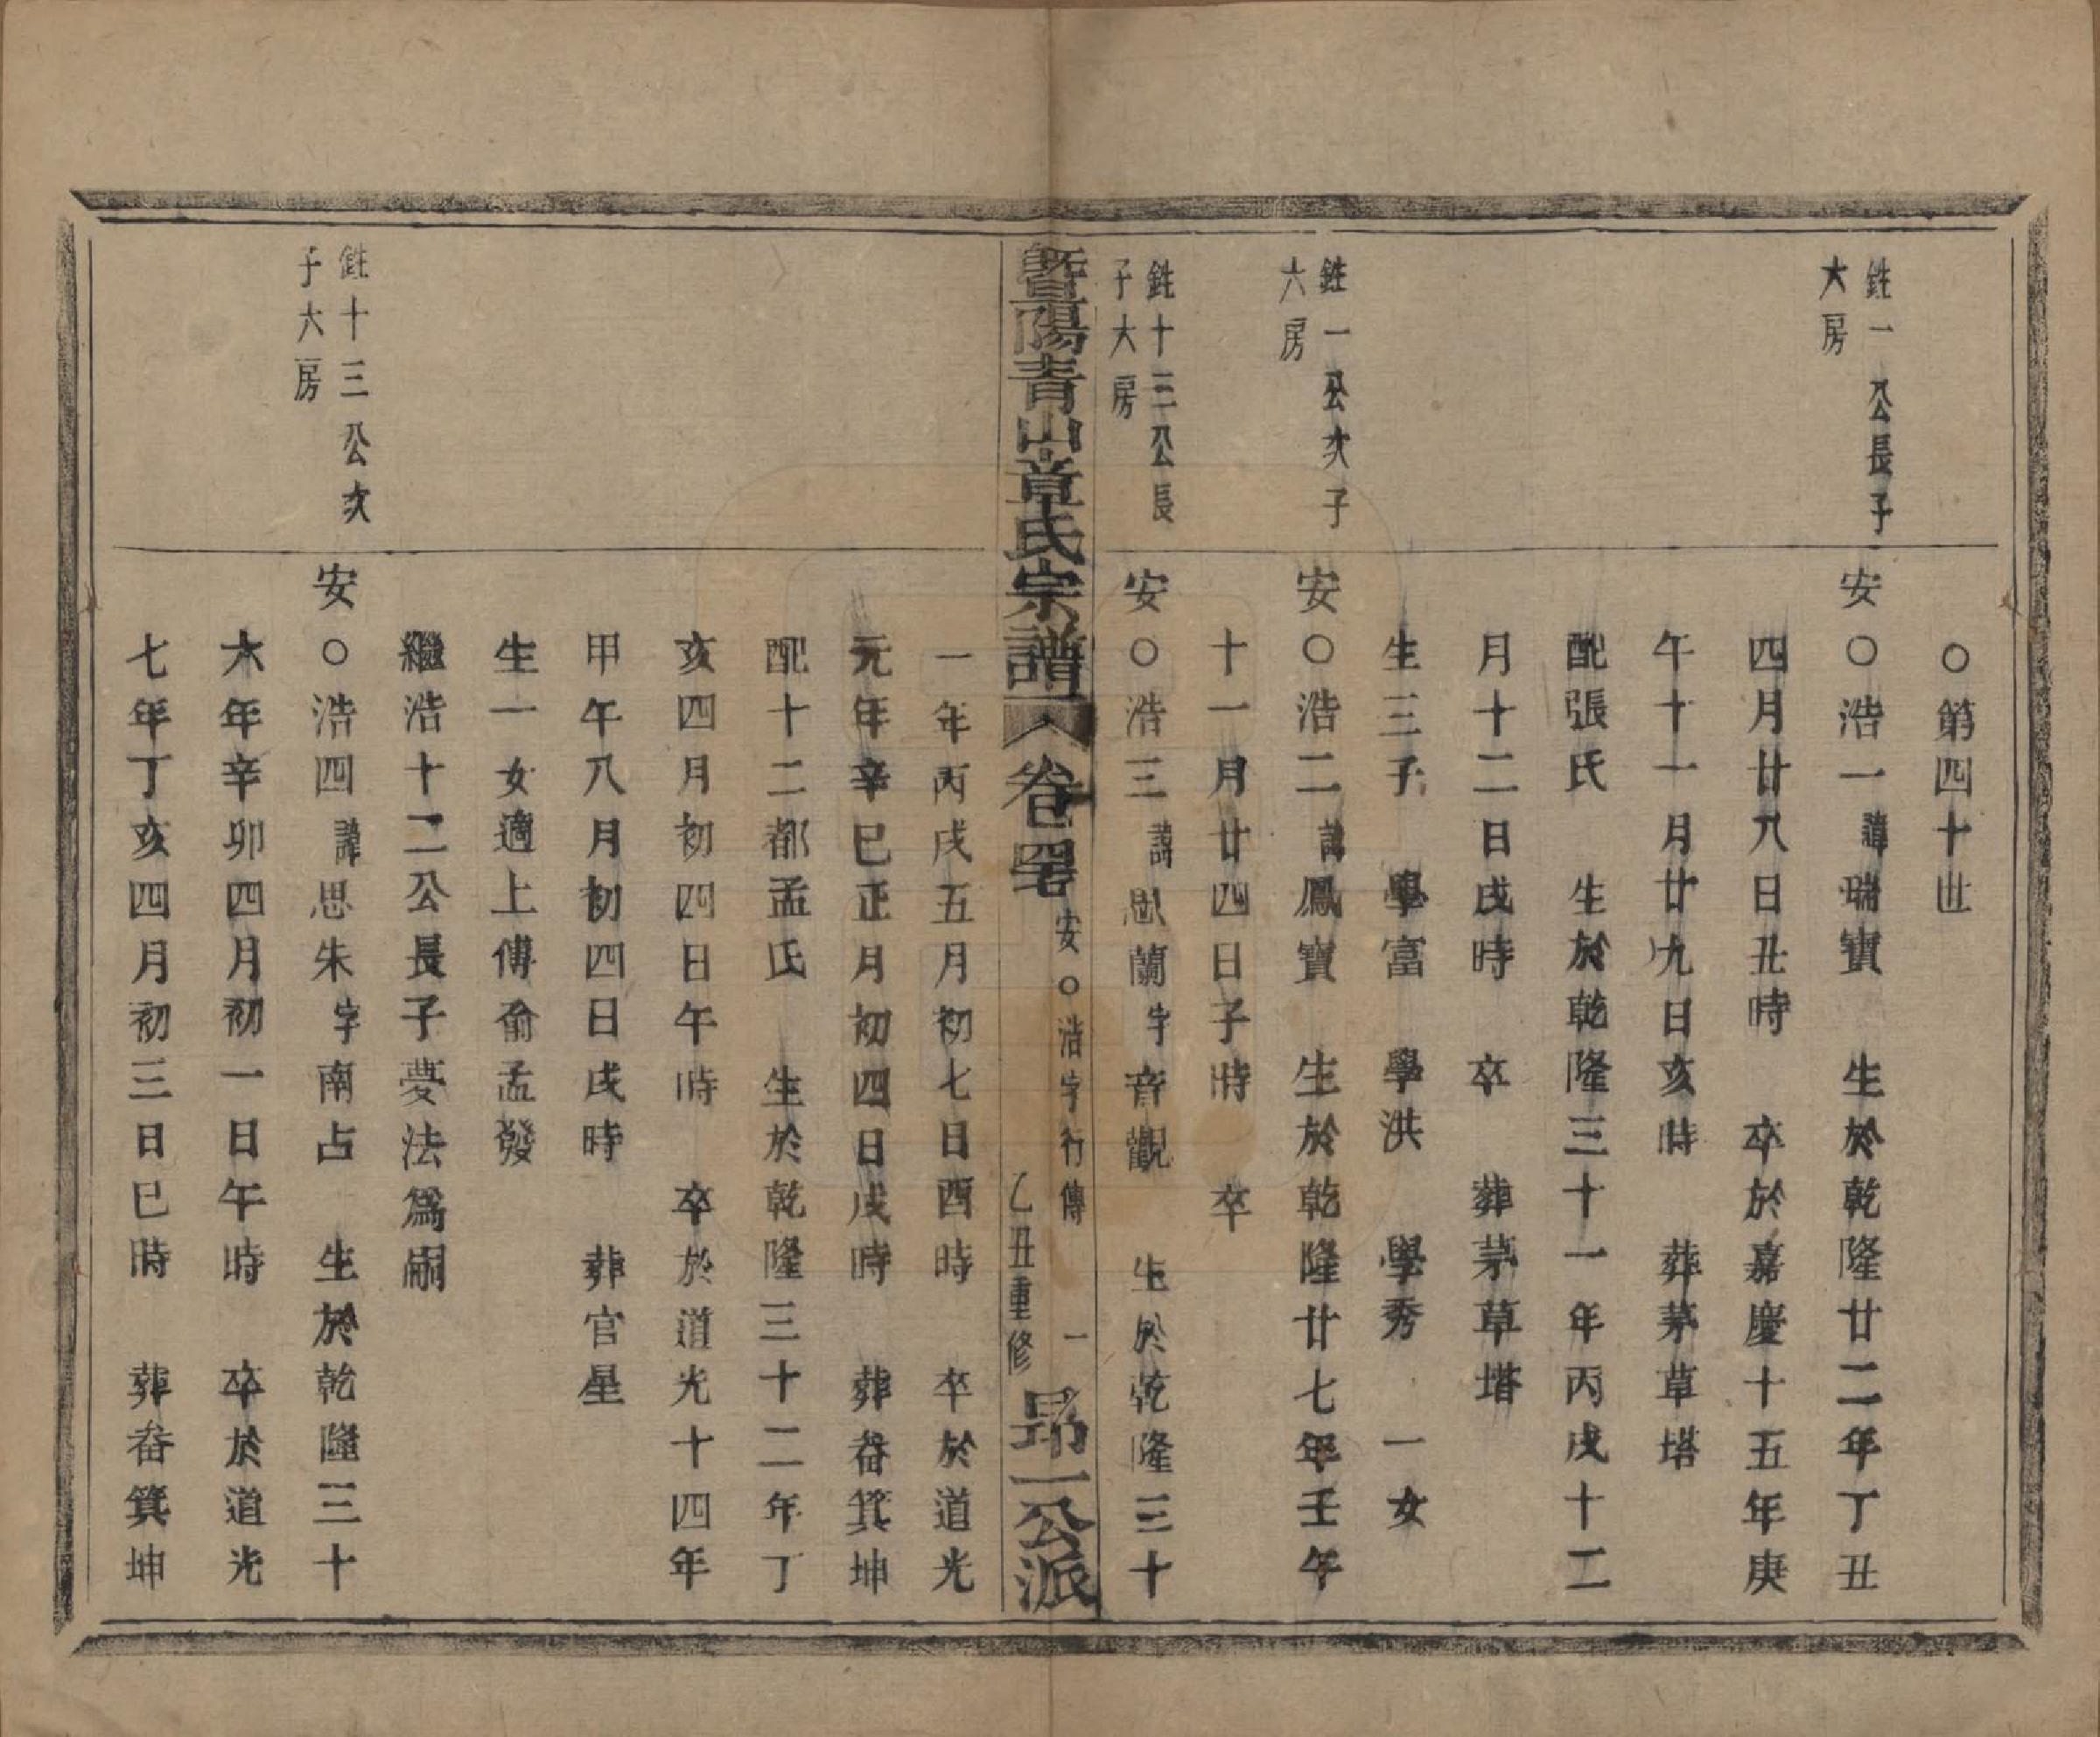 ○第四十世
鉎一公長子
大房
安○浩一諱瑞寶　生於乾隆廿二年丁丑
四月廿八日丑時　卒於嘉慶十五年庚
午十一月廿九日亥時　葬茅草塔
配張氏　生於乾隆三十一年丙戌十二
月十二日戌時　卒　葬茅草塔
生三子　學富　學洪　學秀　一女
鉎一公次子
六房
安○浩二諱鳳寶　生於乾隆廿七年壬午
十一月廿四日子時　卒
鉎十三公長
子大房
安○浩三諱思蘭字音觀　生於乾隆三十
暨陽青山章氏宗譜　卷四　安○浩字行傳　一　乙丑重修　昂一公派
一年丙戌五月初七日酉時　卒於道光
元年辛巳正月初四日戌時　葬畚箕坤
配十二都孟氏　生於乾隆三十二年丁
亥四月初四日午時　卒於道光十四年
甲午八月初四日戌時　葬官星
生一女適上傅俞孟發
繼浩十二公長子夢法爲嗣
鉎十三公次
子大房
安○浩四諱思朱字南占　生於乾隆三十
六年辛卯四月初一日午時　卒於道光
七年丁亥四月初三日巳時　葬畚箕坤